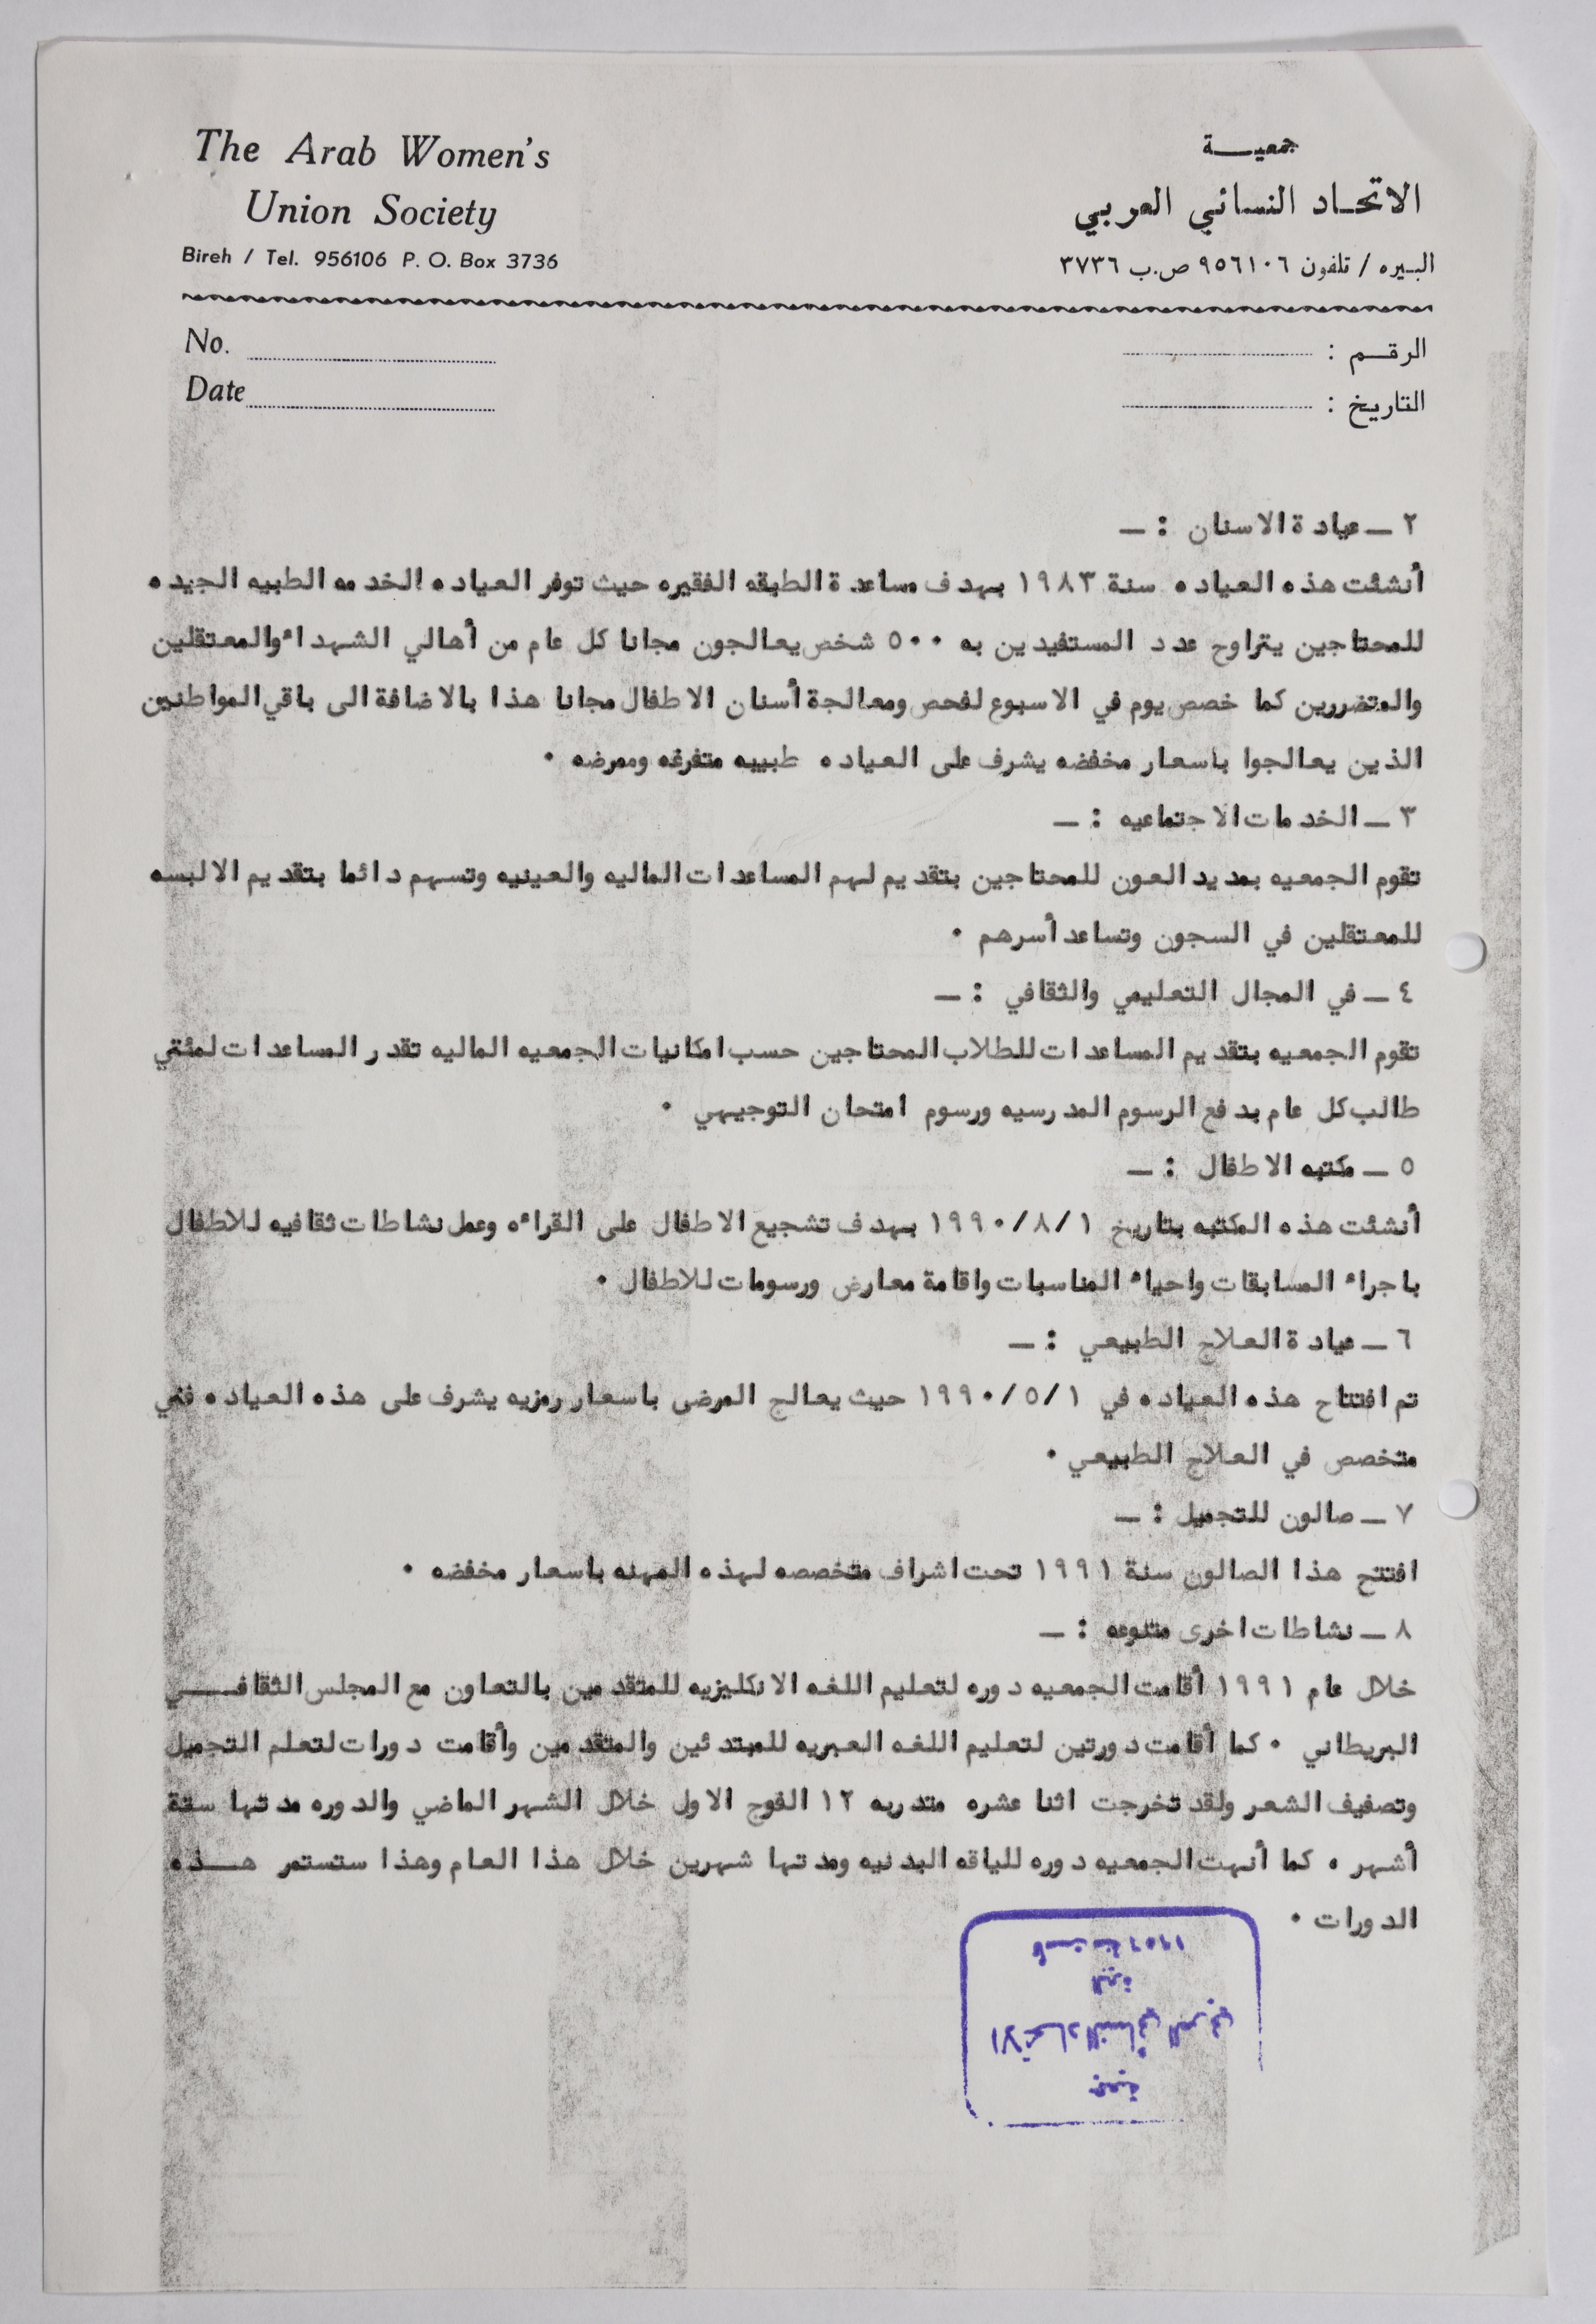 The Arab Women's
Union Society
Bireh / Tel. 956106 P. O. Box 3736
جمعيـــة
الاتحـاد النسائي العربي
البـيره / تلفون ٩٥٦١٠٦ ص.ب ٣٧٣٦
No.
Date
الرقـــم :
التاريـخ :
٢ ـ عيادة الاسنان : ـ
أنشئت هذه العياده سنة ١٩٨٣ بهدف مساعدة الطبقه الفقيره حيث توفر العياده الخدمه الطبيه الجيده
للمحتاجين يتراوح عدد المستفيدين به ٥٠٠ شخص يعالجون مجانا كل عام من أهالي الشهداء والمعتقلين
والمتضررين كما خصص يوم في الاسبوع لفحص ومعالجة أسنان الاطفال مجانا هذا بالاضافة الى باقي المواطنين
الذين يعالجوا باسعار مخفضه يشرف على العياده طبيبه متفرغه وممرضه ٠
٣ ـ الخدمات الاجتماعيه : ـ
تقوم الجمعيه بمد يد العون للمحتاجين بتقديم لهم المساعدات الماليه والعينيه وتسهم دائما بتقديم الالبسه
للمعتقلين في السجون وتساعد أسرهم ٠
٤ ـ في المجال التعليمي والثقافي : ـ
تقوم الجمعيه بتقديم المساعدات للطلاب المحتاجين حسب امكانيات الجمعيه الماليه تقدر المساعدات لمئتي
طالب كل عام بدفع الرسوم المدرسيه ورسوم امتحان التوجيهي ٠
٥ ـ مكتبه الاطفال : ـ
أنشئت هذه المكتبه بتاريخ ١/٨/١٩٩٠ بهدف تشجيع الاطفال على القراءه وعمل نشاطات ثقافيه للاطفال
باجراء المسابقات واحياء المناسبات واقامة معارض ورسومات للاطفال ٠
٦ ـ عيادة العلاج الطبيعي : ـ
تم افتتاح هذه العياده في ١/٥/١٩٩٠ حيث يعالج المرضى باسعار رمزيه يشرف على هذه العياده فني
متخصص في العلاج الطبيعي ٠
٧ ـ صالون للتجميل : ـ
افتتح هذا الصالون سنة ١٩٩١ تحت اشراف متخصصه لهذه المهنه باسعار مخفضه ٠
٨ ـ نشاطات اخرى متنوعه : ـ
خلال عام ١٩٩١ أقامت الجمعيه دوره لتعليم اللغه الانكليزيه للمتقدمين بالتعاون مع المجلس الثقافـــي
البريطاني ٠ كما أقامت دورتين لتعليم اللغه العبريه للمبتدئين والمتقدمين وأقامت دورات لتعلم التجميل
وتصفيف الشعر ولقد تخرجت اثنا عشره متدربه ١٢ الفوج الاول خلال الشهر الماضي والدوره مدتها ستة
أشهر ٠ كما أنهت الجمعيه دوره للياقه البدنيه ومدتها شهرين خلال هذا العام وهذا ستستمر هـــذه
الدورات ٠
جمعية
الاتحاد النسائي العربي
البيرة
تأسست سنة ١٩٥٦